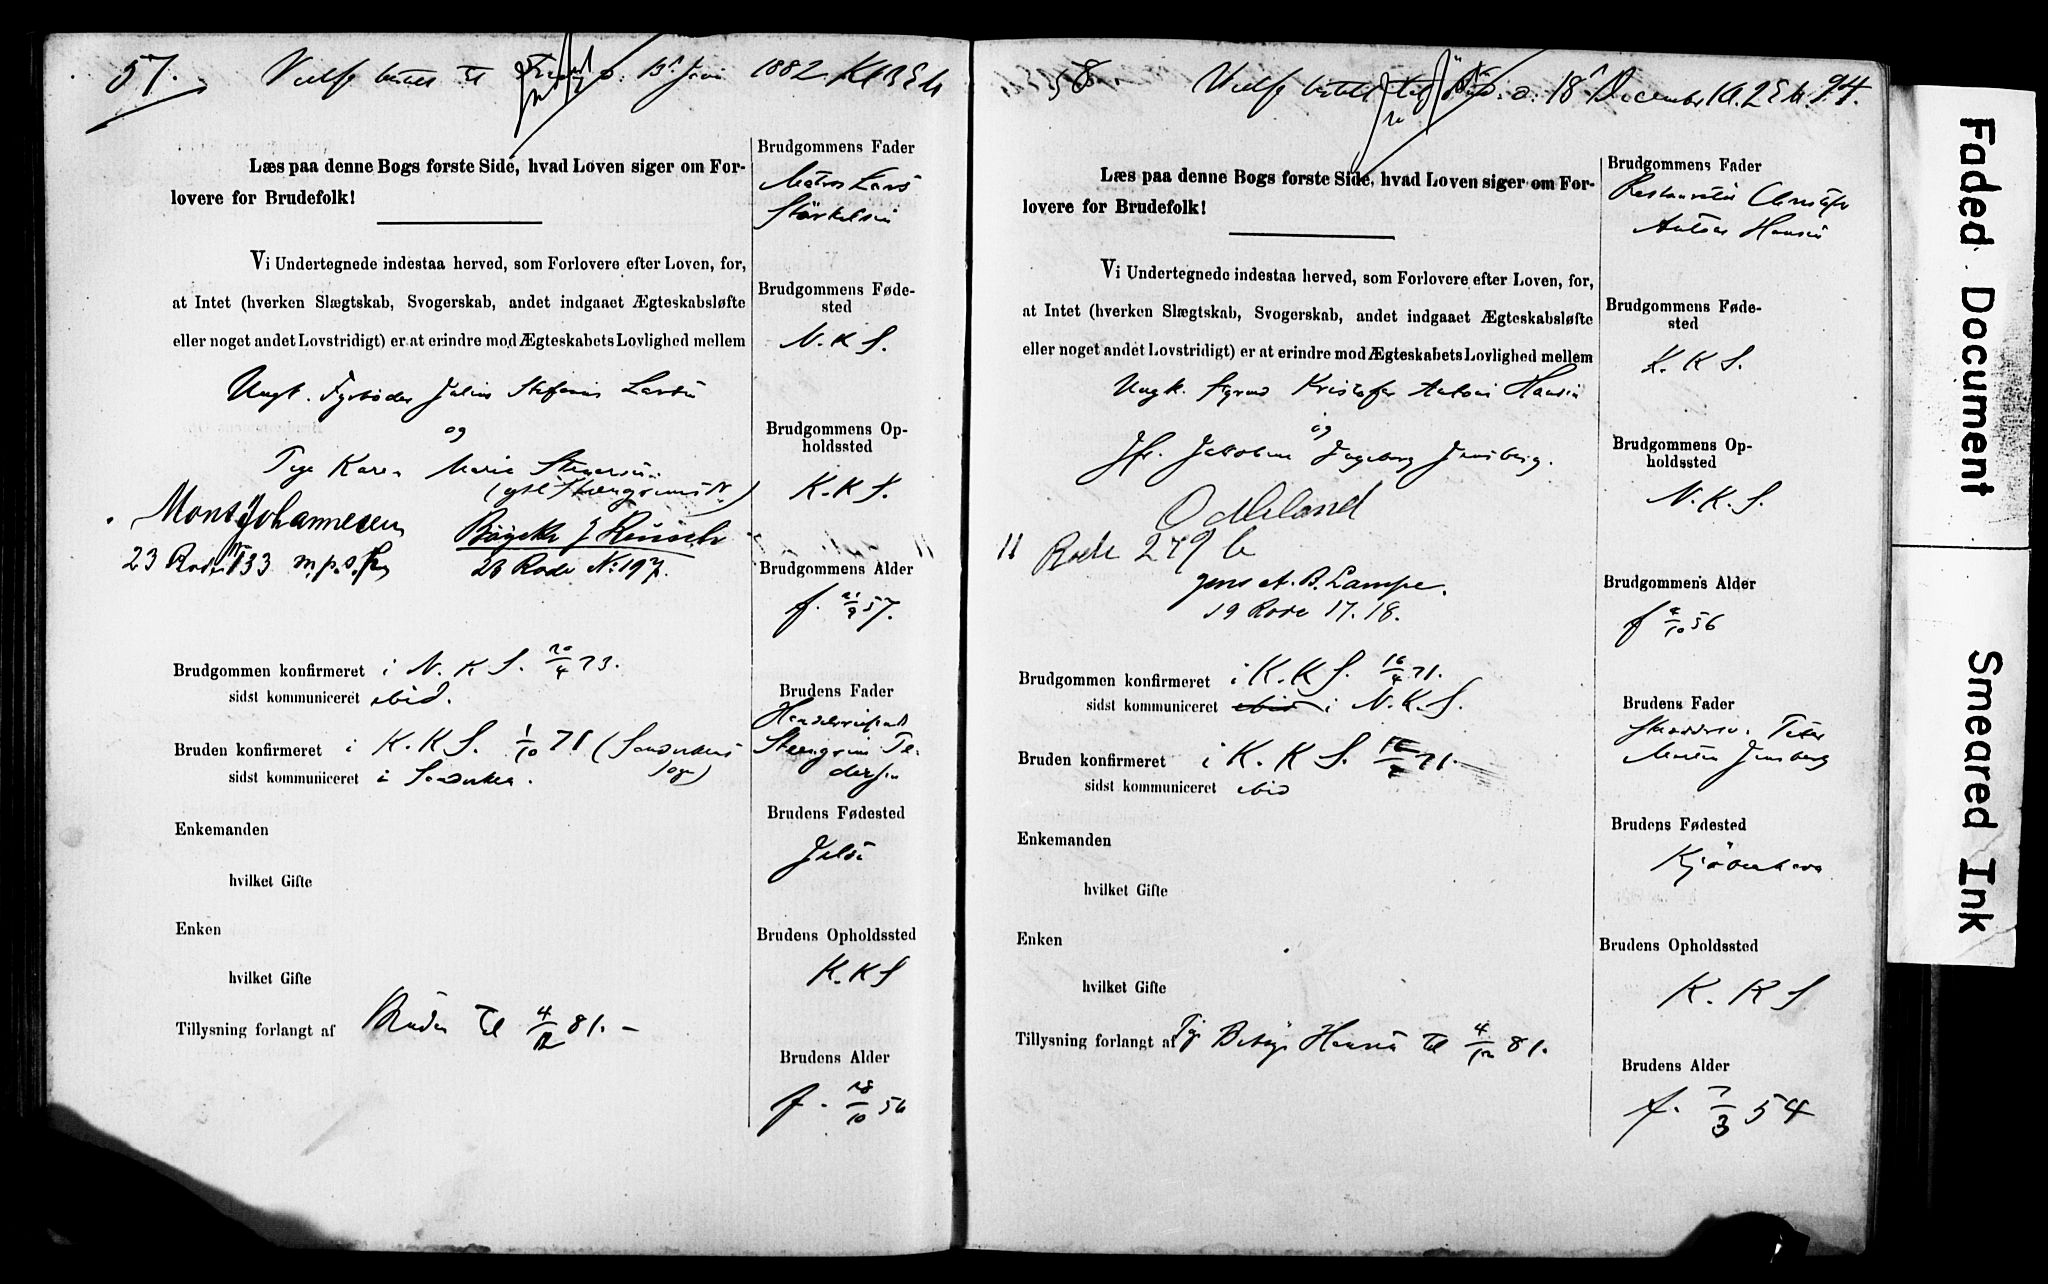 57.
1882 Kl
Læs paa denne Bogs første Side, hvad Loven siger om For-
lovere for Brudefolk!
Vi Undertegnede indestaa herved, som Forlovere efter Loven, for,
at Intet (hverken Slægtskab, Svogerskab, andet indgaaet Ægteskabsløfte
eller noget andet Lovstridigt) er at erindre mod Ægteskabets Lovlighed mellem
Ungk. Fyrbøder Julius Stefanus Larsen
og
Pige Karen Marie
Mons Johannesen
23 Rode No 133 m.p.s. Pen
23 Rode No 197.
Brudgommen konfirmeret i N. K S. 20/4 73.
sidst kommuniceret ibid.
Bruden konfirmeret i K. K S. 1/10 71 (Sandvikens
Sogn)
sidst kommuniceret i Sandviken.
Enkemanden
hvilket Gifte
Enken
hvilket Gifte
Tillysning forlangt af Bruden til 4/12 81. –
Brudgommens Fader
Matros Lars
Brudgommens Føde-
sted
N. K S.
Brudgommens Op-
holdssted
K. K S.
Brudgommens Alder
f. 21/9 57.
Brudens Fader
Steengrim Pe-
dersen
Brudens Fødested
Jelse
Brudens Opholdssted
K. K S
Brudens Alder
f. 28/10 56
58
18 December Kl. 2 Em. 94.
Læs paa denne Bogs første Side, hvad Loven siger om For-
lovere for Brudefolk!
Vi Undertegnede indestaa herved, som Forlovere efter Loven, for,
at Intet (hverken Slægtskab, Svogerskab, andet indgaaet Ægteskabsløfte
eller noget andet Lovstridigt) er at erindre mod Ægteskabets Lovlighed mellem
Ungk. Styrmd Kristofer Antson Hansen
og
Jfr. Jakobine Ingeborg Jensberg.
O Meland
11 Rode 279 b
Jens A. B. Lampe.
19 Rode 17. 18.
Brudgommen konfirmeret i K. K S. 16/4 71.
sidst kommuniceret ibid i N. K. S.
Bruden konfirmeret i K. K S. 71.
sidst kommuniceret ibid
Enkemanden
hvilket Gifte
Enken
hvilket Gifte
Tillysning forlangt af Pige Hansen til 4/12 81.
Brudgommens Fader
Restauratør Christofer
Antson Hansen
Brudgommens Føde-
sted
K. K S.
Brudgommens Op-
holdssted
N. K. S.
Brudgommens Alder
f 4/10 56
Brudens Fader
Skræddrm. Peter
Martin Jensberg
Brudens Fødested
Kjöbenhavn
Brudens Opholdssted
K. K S
Brudens Alder
f. 7/3 54
Faded Document
Smeared Ink